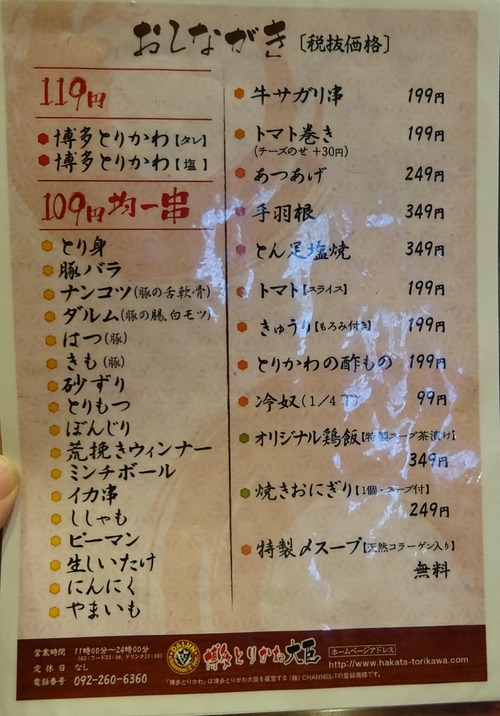 おしながき〔税抜価格〕
119円
博多とりかわ【タレ】
博多とりかわ【塩】
109円均一串
とり身
豚バラ
ナンコツ(豚の舌軟骨)
ダルム(豚の腸、白モツ)
はつ(豚)
きも(豚)
砂ずり
とりもつ
ぼんじり
荒挽きウィンナー
ミンチボール
イカ串
ししゃも
ピーマン
生しいたけ
にんにく
やまいも
牛サガリ串 199円
トマト巻き 199円
(チーズのせ +30円)
あつあげ 249円
手羽根 349円
とん足塩焼 349円
トマト【スライス】 199円
きゅうり【もろみ付き】 199円
とりかわの酢もの 199円
冷奴(1/4丁) 99円
オリジナル鶏飯【特製スープ茶漬け】
349円
焼きおにぎり【1個・スープ付】
249円
特製〆スープ【天然コラーゲン入り】
無料
営業時間 11時00分〜24時00分
定休日 なし
電話番号 092-260-6360
博多とりかわ大臣
ホームページアドレス
http://www.hakata-torikawa.com
「博多とりかわ」は博多とりかわ大臣を運営する(株)CHANNEL-7の登録商標です。